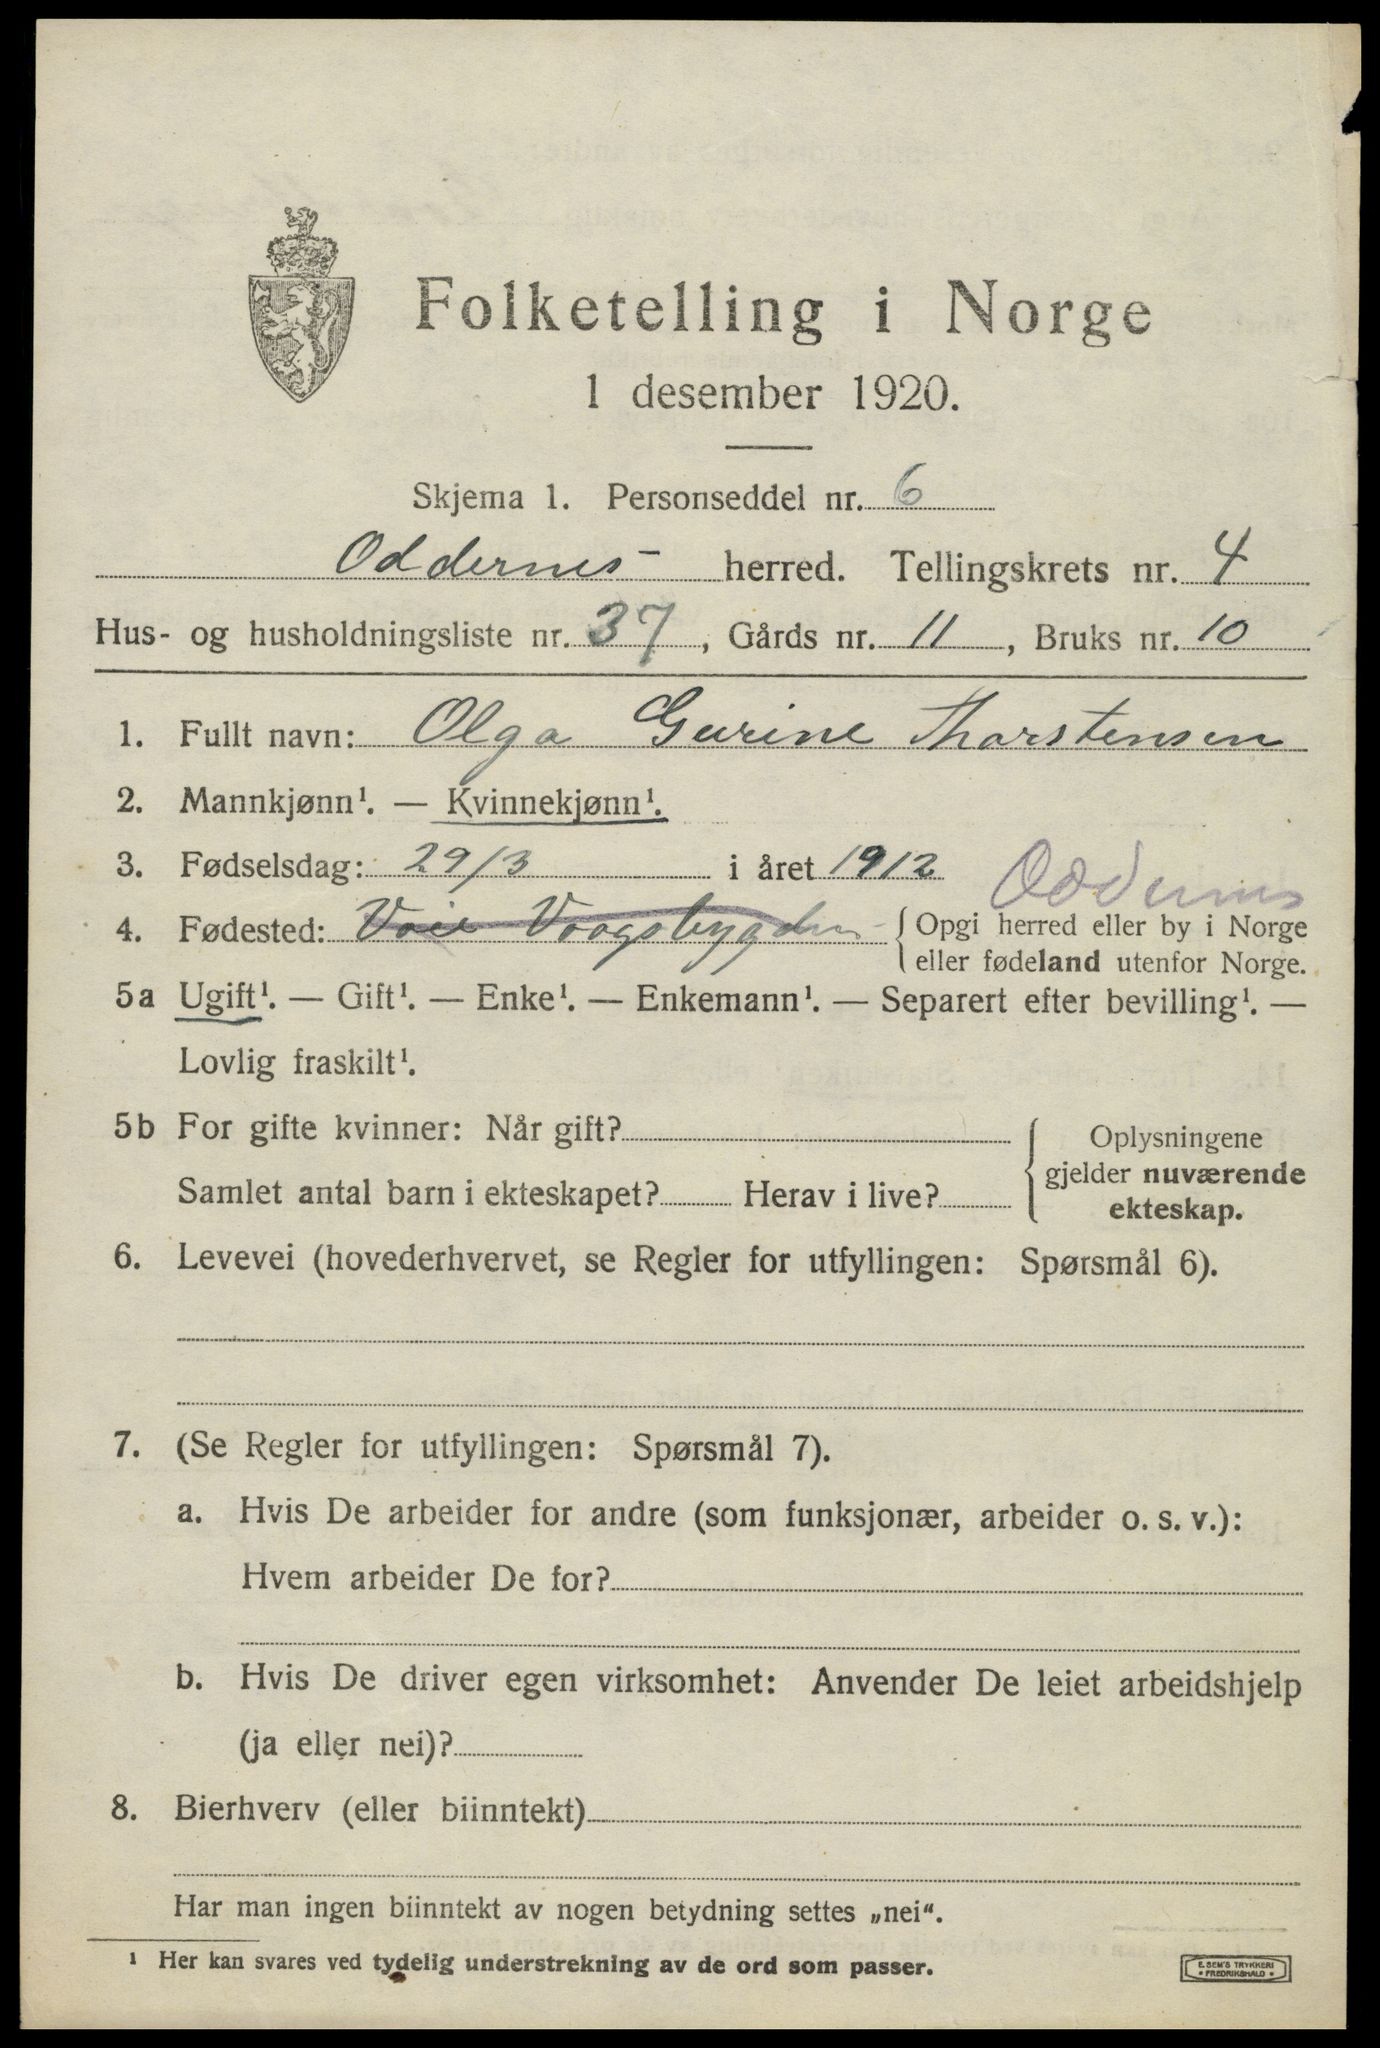 Folketelling i Norge
1 desember 1920.
Skjema 1. Personseddel nr. 6
Oddernes herred. Tellingskrets nr. 4
Hus- og husholdningsliste nr. 37, Gårds nr. 11, Bruks nr. 10
1. Fullt navn: Olga Gurine Thorstensen
2. Mannkjønn¹. — Kvinnekjønn¹.
3. Fødselsdag: 29/3 i året 1912 Oddernes
4. Fødested: Voie Vaagsbygden { Opgi herred eller by i Norge
eller fødeland utenfor Norge.
5a Ugift¹. — Gift¹. — Enke¹. — Enkemann¹. — Separert efter bevilling¹. —
Lovlig fraskilt¹.
5b For gifte kvinner: Når gift?
Samlet antal barn i ekteskapet? Herav i live?
{ Oplysningene
gjelder nuværende
ekteskap.
6. Levevei (hovederhvervet, se Regler for utfyllingen: Spørsmål 6).
7. (Se Regler for utfyllingen: Spørsmål 7).
a. Hvis De arbeider for andre (som funksjonær, arbeider o. s. v.):
Hvem arbeider De for?
b. Hvis De driver egen virksomhet: Anvender De leiet arbeidshjelp
(ja eller nei)?
8. Bierhverv (eller biinntekt)
Har man ingen biinntekt av nogen betydning settes „nei".
¹ Her kan svares ved tydelig understrekning av de ord som passer.
E. SEM'S TRYKKERI
• FREDRIKSHALD •